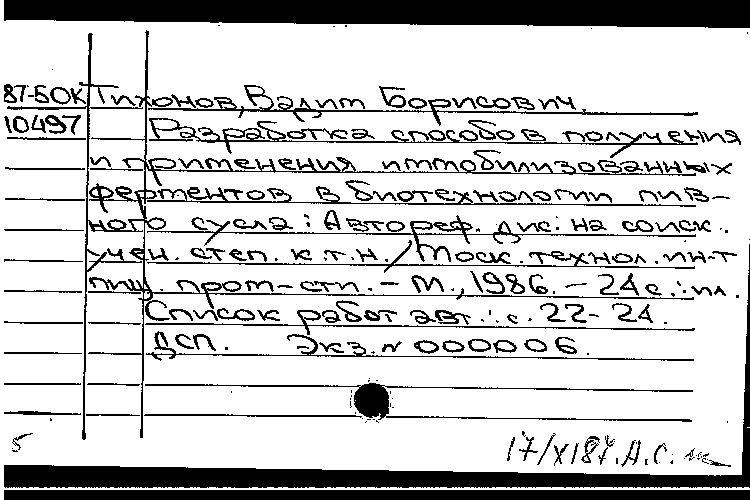 87-5ОК Тихонов, Вадим Борисович.
10497 Разработка способов получения
и применения иммобилизованных
ферментов в биотехнологии пив-
ного сусла: Автореф. дис. на соиск.
учен. степ. к.т.н. / Моск. технол. ин-т
пищ. пром-сти. - М., 1986. - 24 с.: ил.
Список работ авт.: с. 22-24.
ДСП. Экз. № 000006.
5 17/XI87. А.С.